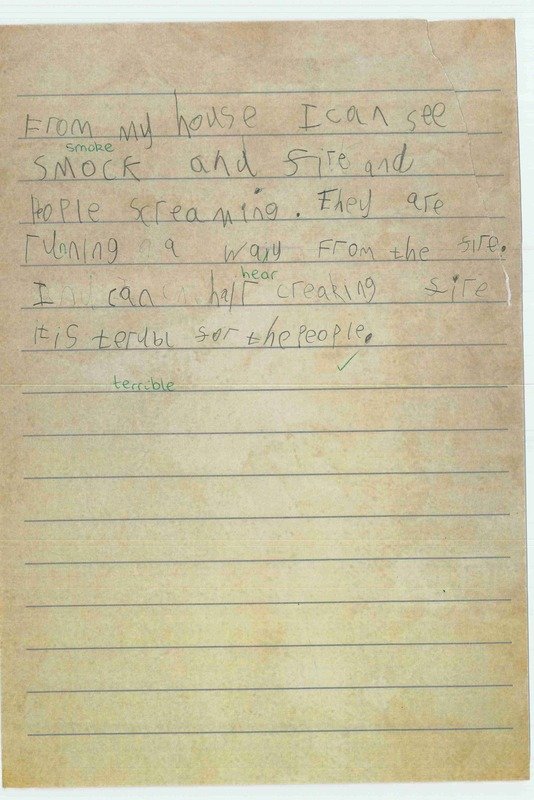 From my house I can see
smoke
SMOCK and fire and
People screaming. They are
running a way From the fire.
hear
I can hair creaking fire
it is terubl for the People.
terrible